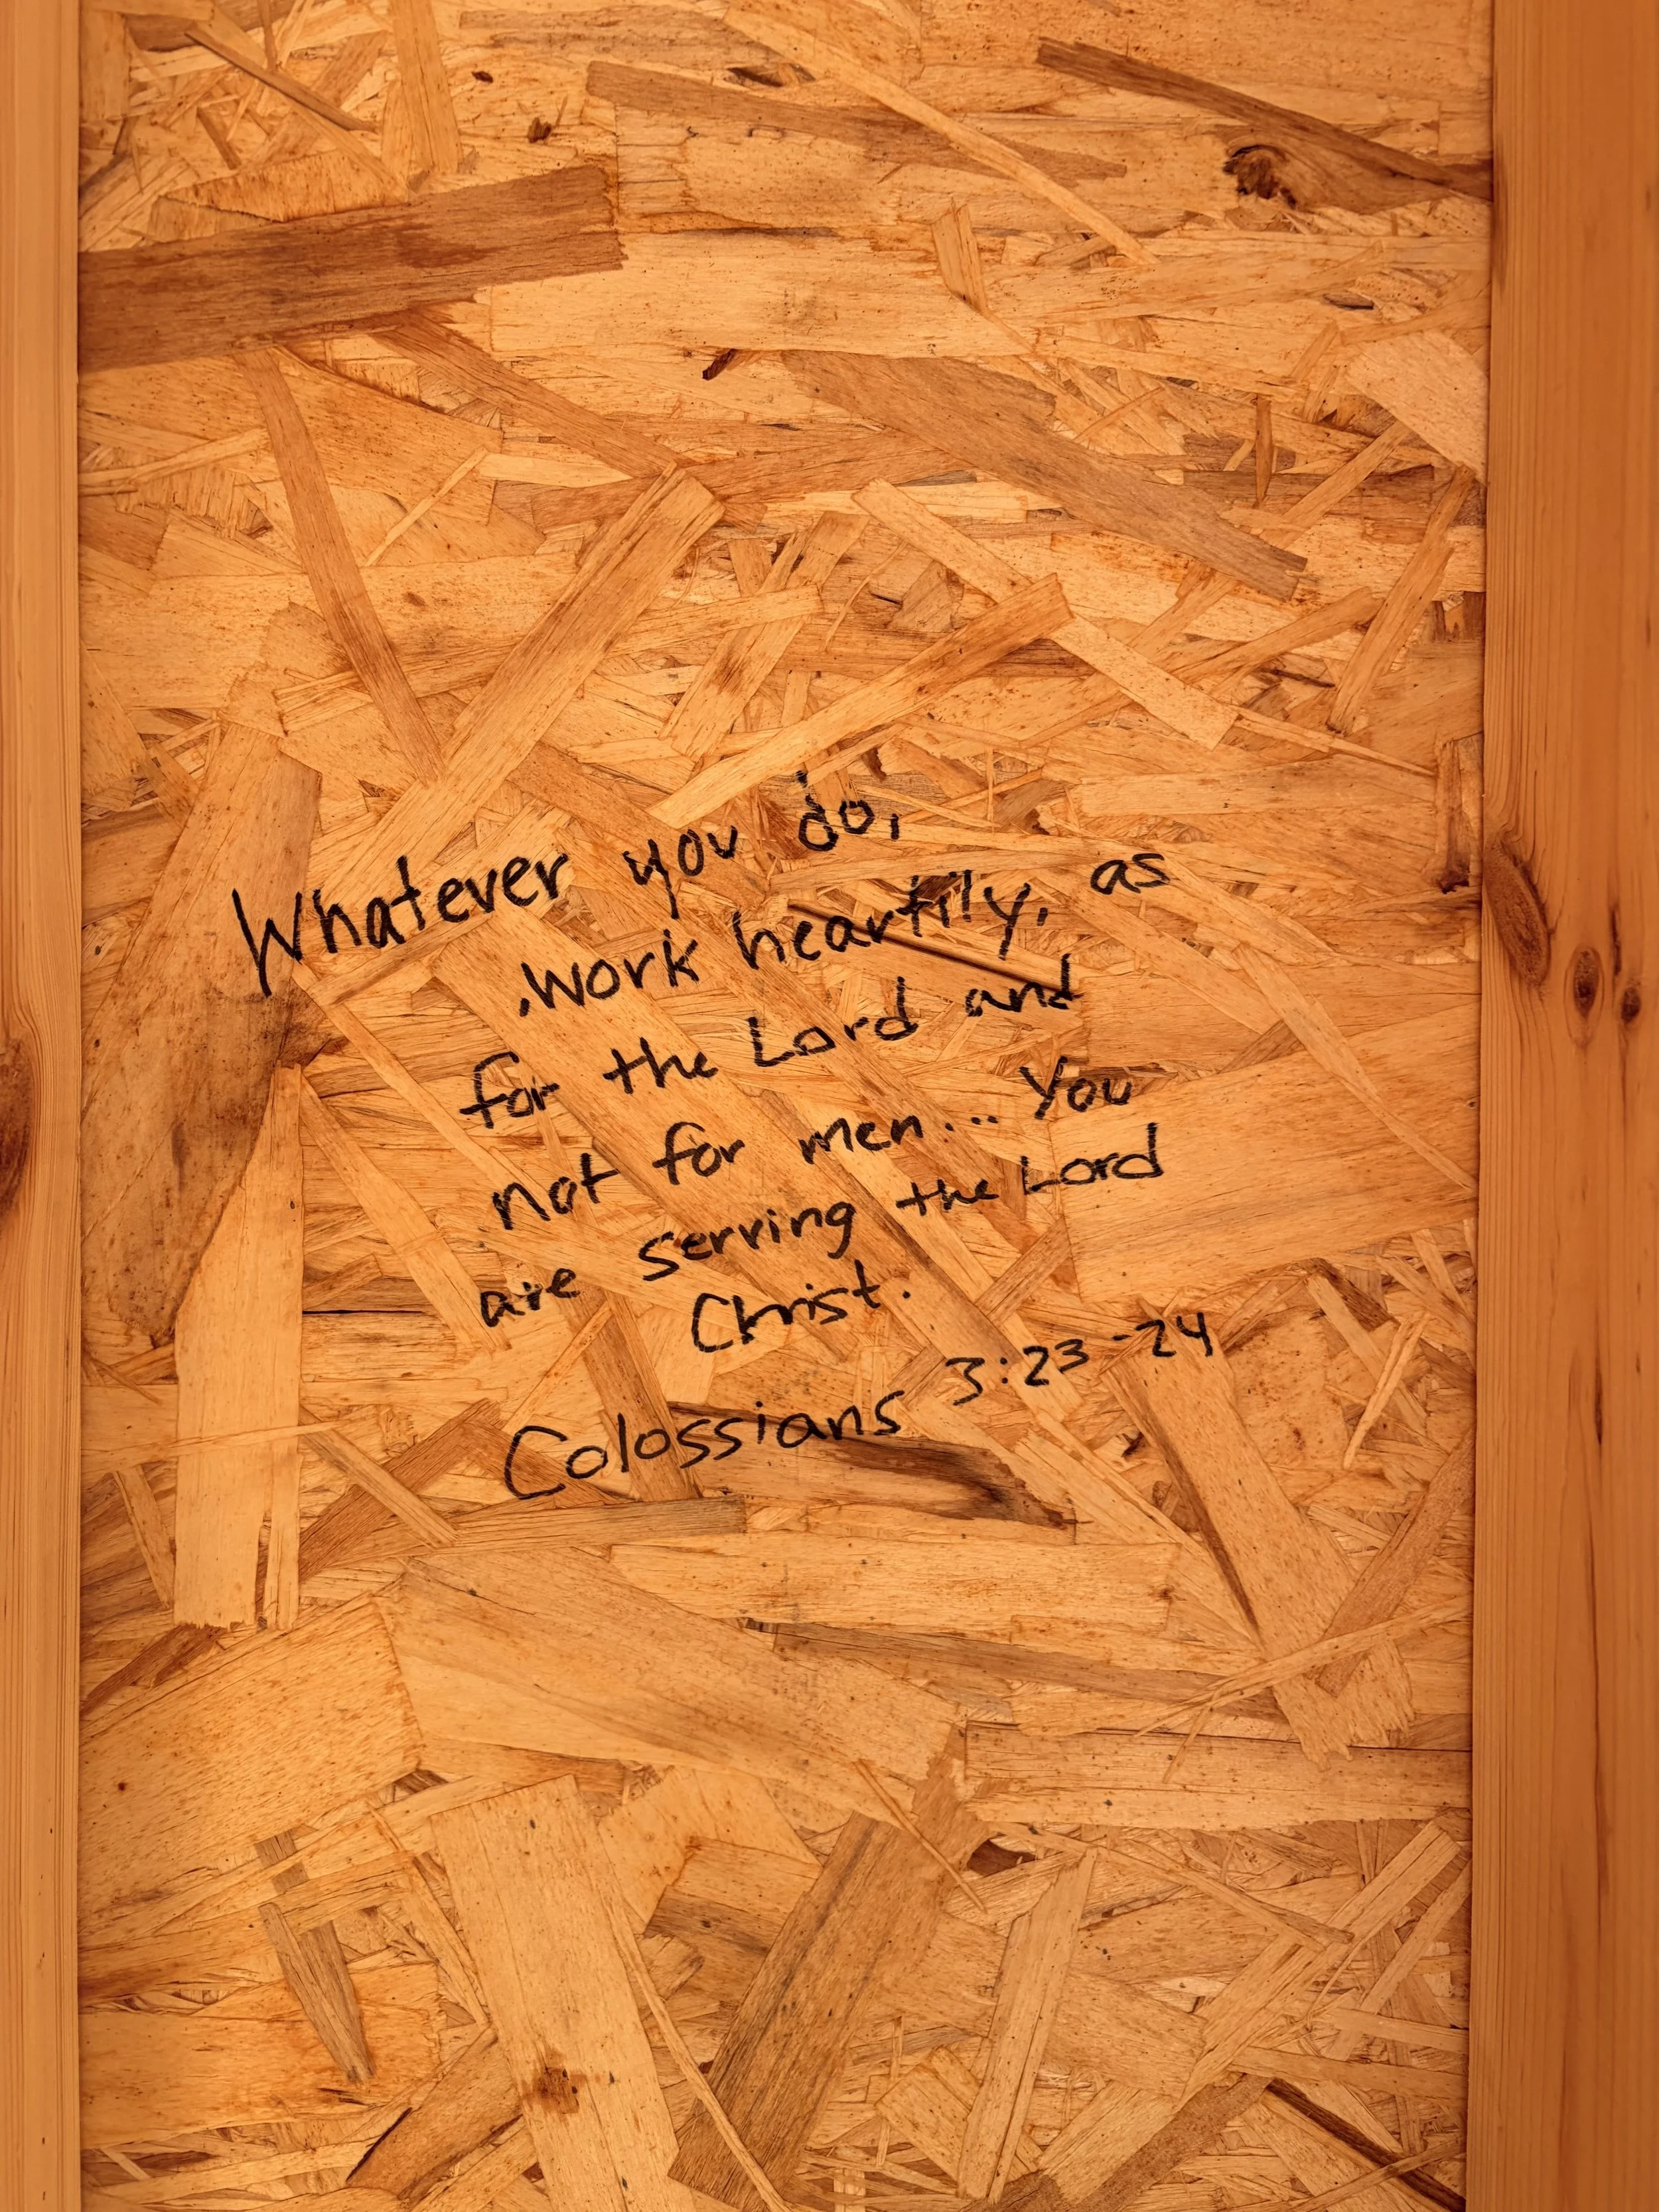 Whatever you do,
work heartily, as
for the Lord and
not for men... You
are serving the Lord
Christ.
Colossians 3:23-24